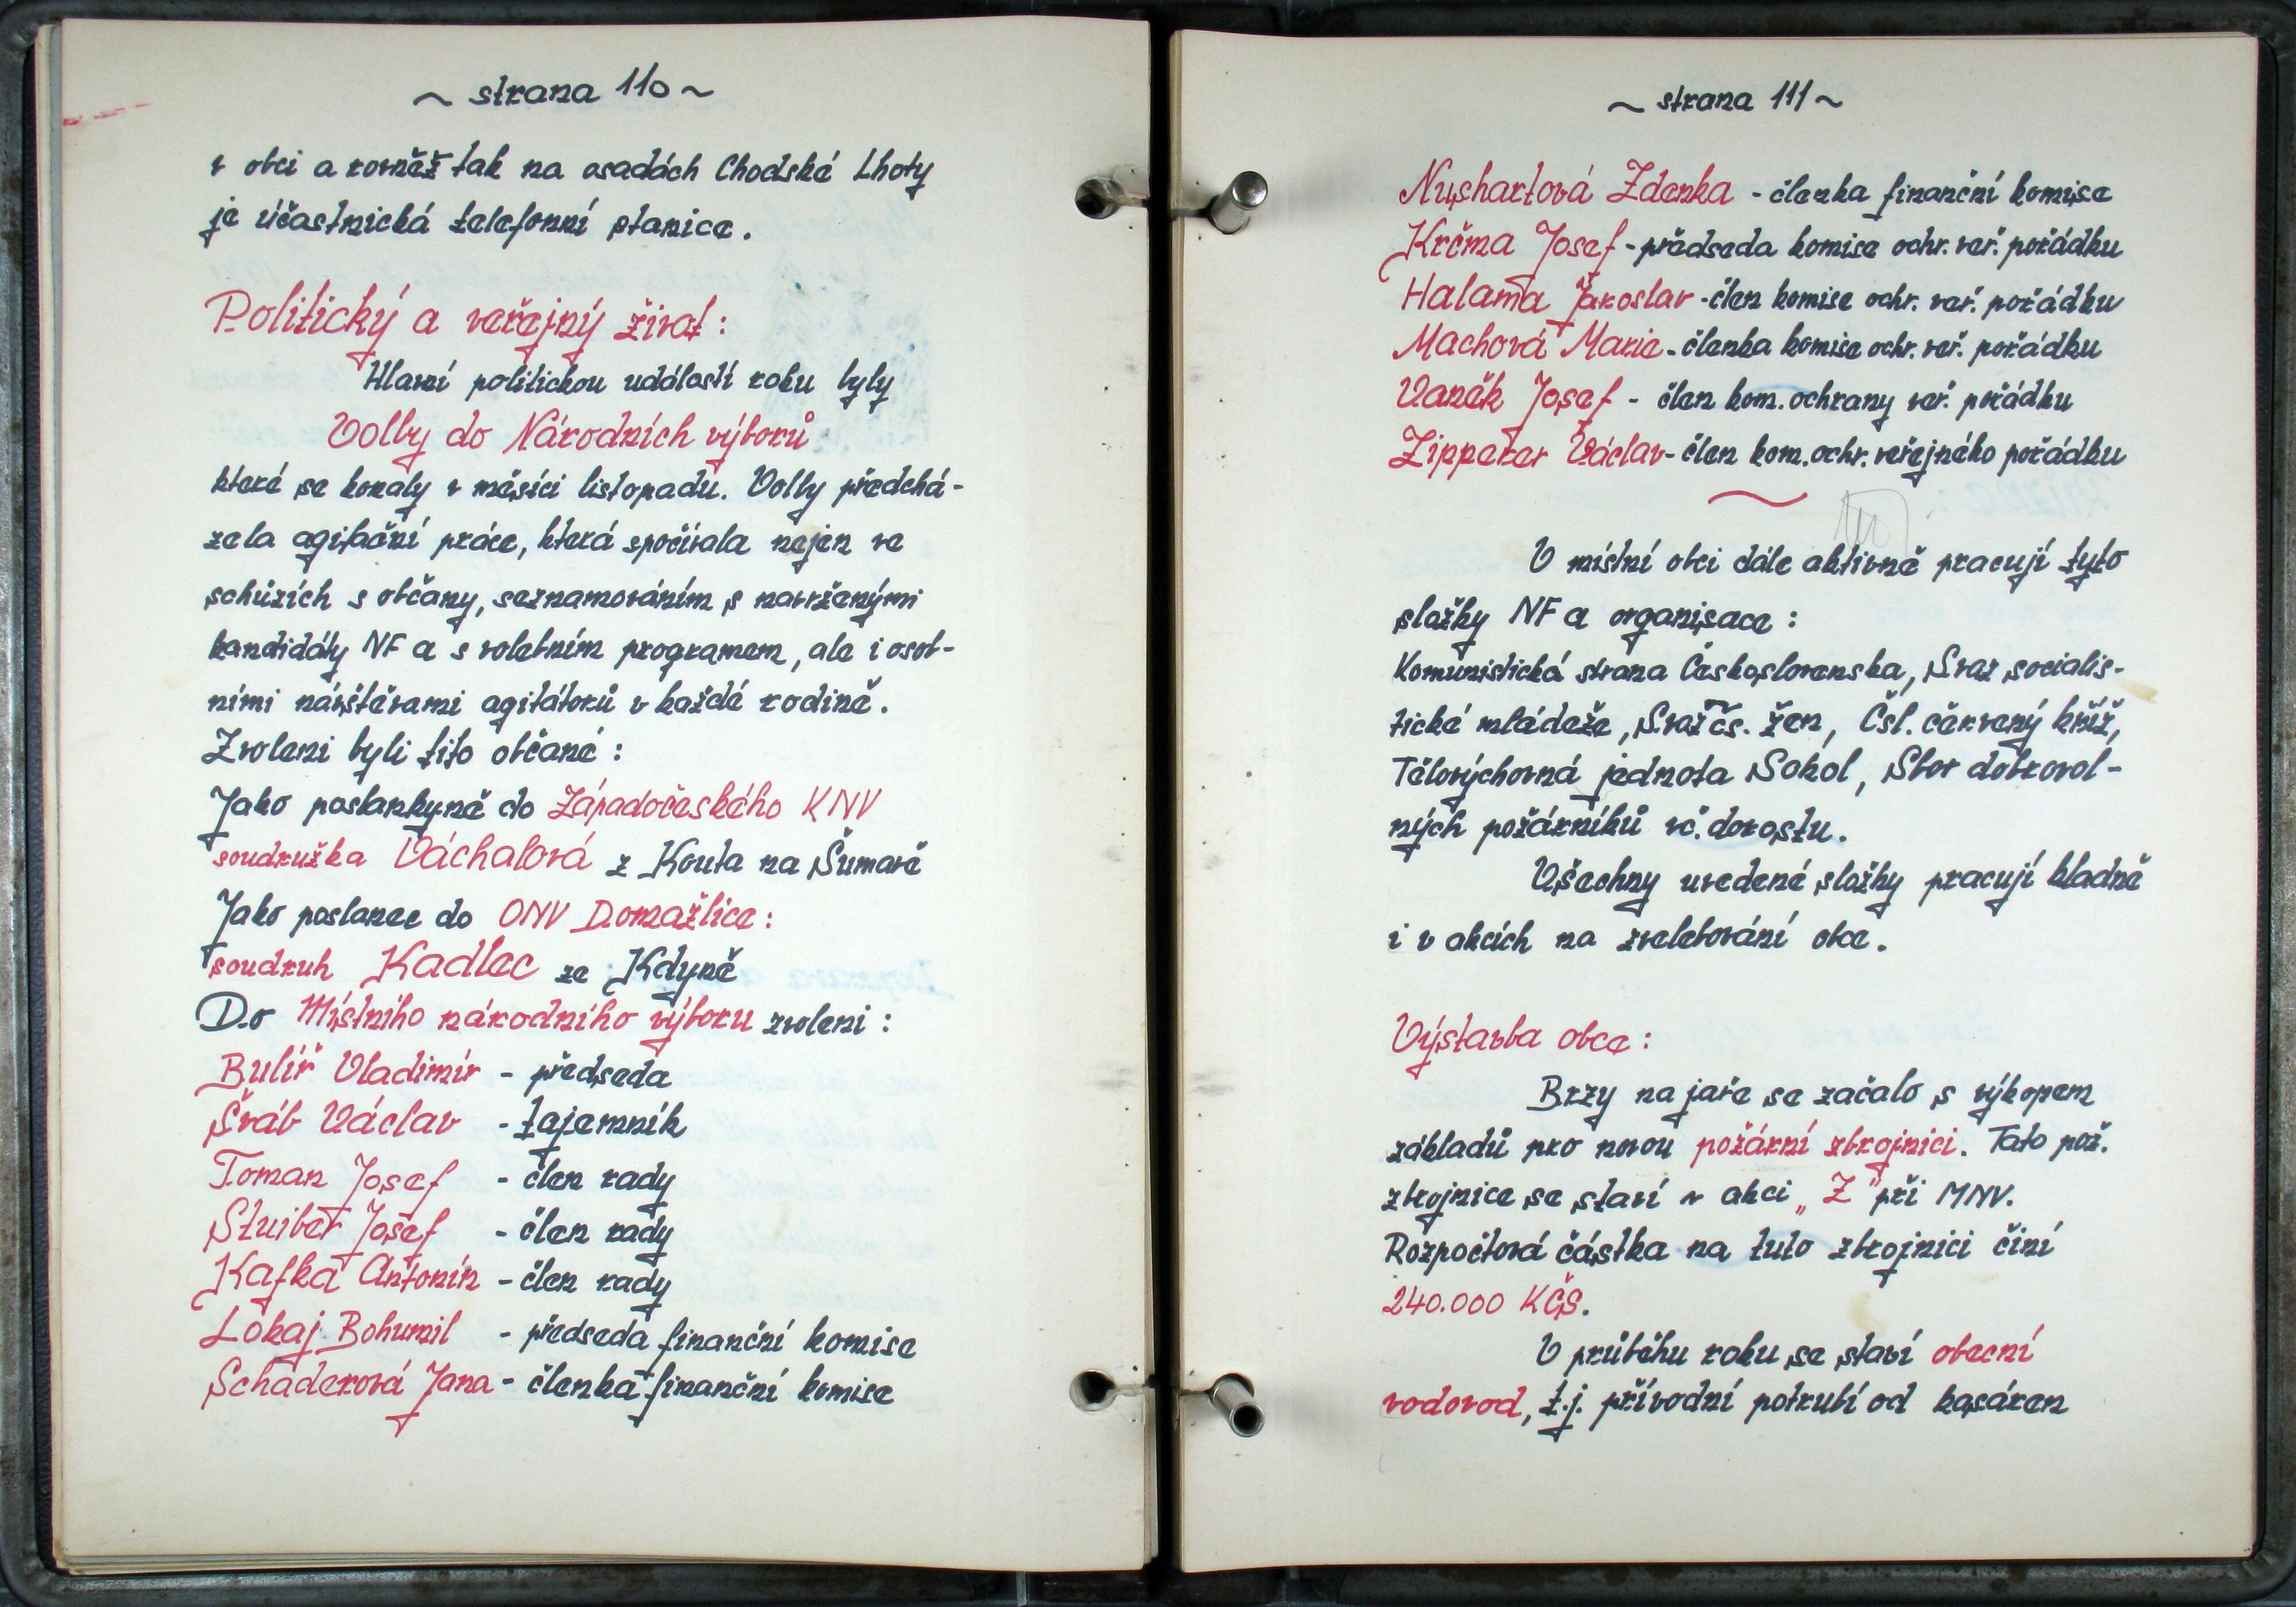 ~ strana 110 ~
v obci a rovněž tak na osadách Chodské Lhoty
je účastnická telefonní stanice.
Politický a veřejný život:
Hlavní politickou událostí roku byly
Volby do Národních výborů
které se konaly v měsíci listopadu. Volby předchá-
zela agitační práce, která spočívala nejen ve
schůzích s občany, seznamováním s navrženými
kandidáty NF a s volebním programem, ale i osob-
ními návštěvami agitátorů v každé rodině.
Zvoleni byli tito občané:
Jako poslankyně do Západočeského KNV
soudružka Váchalová z Kouta na Šumavě
Jako poslanec do ONV Domažlice:
soudruh Kadlec ze Kdyně
Do Místního národního výboru zvoleni:
Bulíř Vladimír - předseda
Šváb Václav - tajemník
Toman Josef - člen rady
Stuiber Josef - člen rady
Kafka Antonín - člen rady
Lokaj Bohumil - předseda finanční komise
Schäderová Jana - členka finanční komise
~ strana 111 ~
Nushartová Zdenka - členka finanční komise
Krčma Josef - předseda komise ochr. veř. pořádku
Halama Jaroslav - člen komise ochr. veř. pořádku
Machová Marie - členka komise ochr. veř. pořádku
Vaněk Josef - člen kom. ochrany veř. pořádku
Zipperer Václav - člen kom. ochr. veřejného pořádku
V místní obci dále aktivně pracují tyto
složky NF a organisace:
Komunistická strana Československa, Svaz socialis-
tické mládeže, Svaz čs. žen, Čsl. červený kříž,
Tělovýchovná jednota Sokol, Sbor dobrovol-
ných požárníků vč. dorostu.
Všechny uvedené složky pracují kladně
i v akcích na zvelebování obce.
Výstavba obce:
Brzy na jaře se začalo s výkopem
základů pro novou požární zbrojnici. Tato pož.
zbrojnice se staví v akci „Z" při MNV.
Rozpočtová částka na tuto zbrojnici činí
240.000 KČS.
V průběhu roku se staví obecní
vodovod, t.j. přívodní potrubí od kasáren